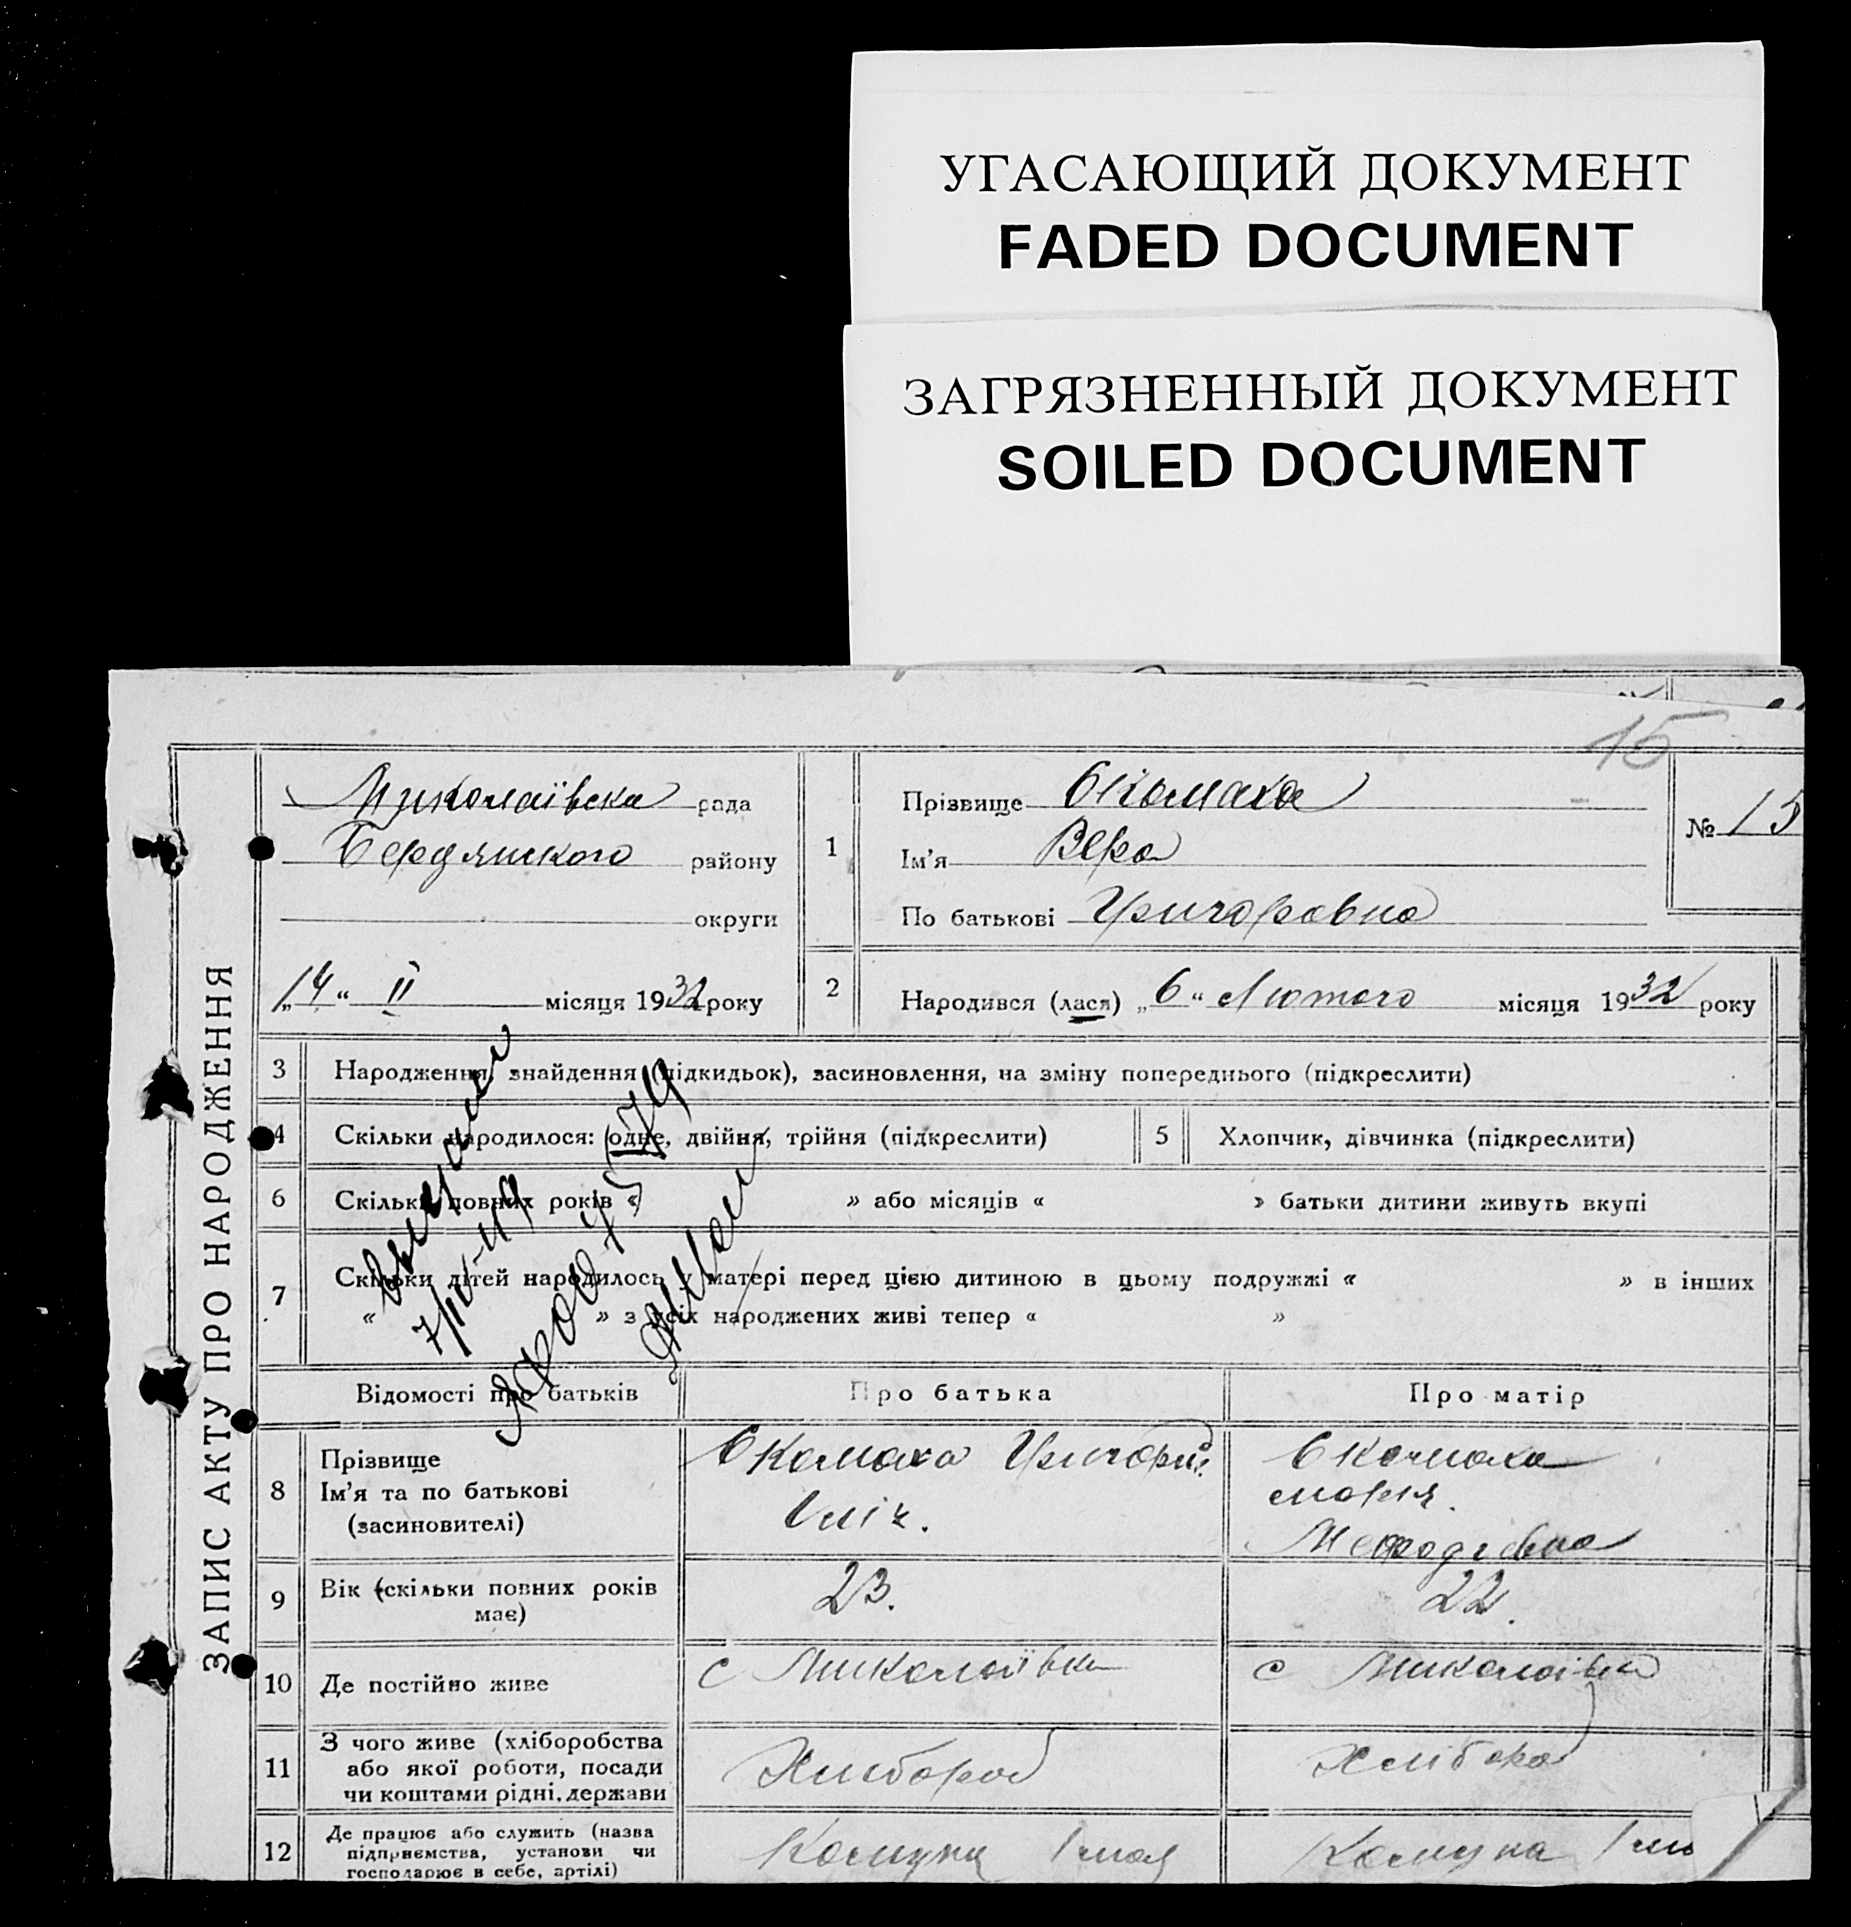 УГАСАЮЩИЙ ДОКУМЕНТ
FADED DOCUMENT
ЗАГРЯЗНЕННЫЙ ДОКУМЕНТ
SOILED DOCUMENT
15
ЗАПИС АКТУ ПРО НАРОДЖЕННЯ
Миколаївська рада
Бердянського району
округи
„14“ II місяця 1932 року
1
Прізвище Скомаха
Ім'я Вера
По батькові Григоровна
№ 15
2
Народився (лася) „6“ Лютого місяця 1932 року
3 Народження, знайдення (підкидьок), засиновлення, на зміну попереднього (підкреслити)
4 Скільки народилося: (одне, двійня, трійня (підкреслити)
5 Хлопчик, дівчинка (підкреслити)
6 Скільки повних років « » або місяців « » батьки дитини живуть вкупі
7 Скільки дітей народилось у матері перед цією дитиною в цьому подружжі « » в інших
« » з усіх народжених живі тепер « »
7/IV-49
Відомості про батьків Про батька Про матір
8 Прізвище
Ім'я та по батькові
(засиновителі)
Скомаха Григорій
Іліч.
Скомаха
Марія
Мефодієвна
9 Вік (скільки повних років
має)
23. 22.
10 Де постійно живе с Миколаївка с Миколаївка
11 З чого живе (хліборобства
або якої роботи, посади
чи коштами рідні, держави
Хлібороб Хлібороб
12 Де працює або служить (назва
підприємства, установи чи
господарює в себе, артілі)
Комуна 1 мая Комуна 1